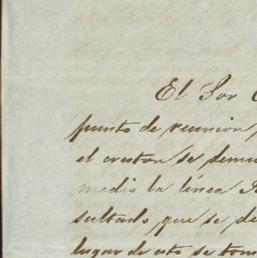 El Sor
punto de reunion,
el creston se
medio la línea
sultado que se de
lugar de esto se tom